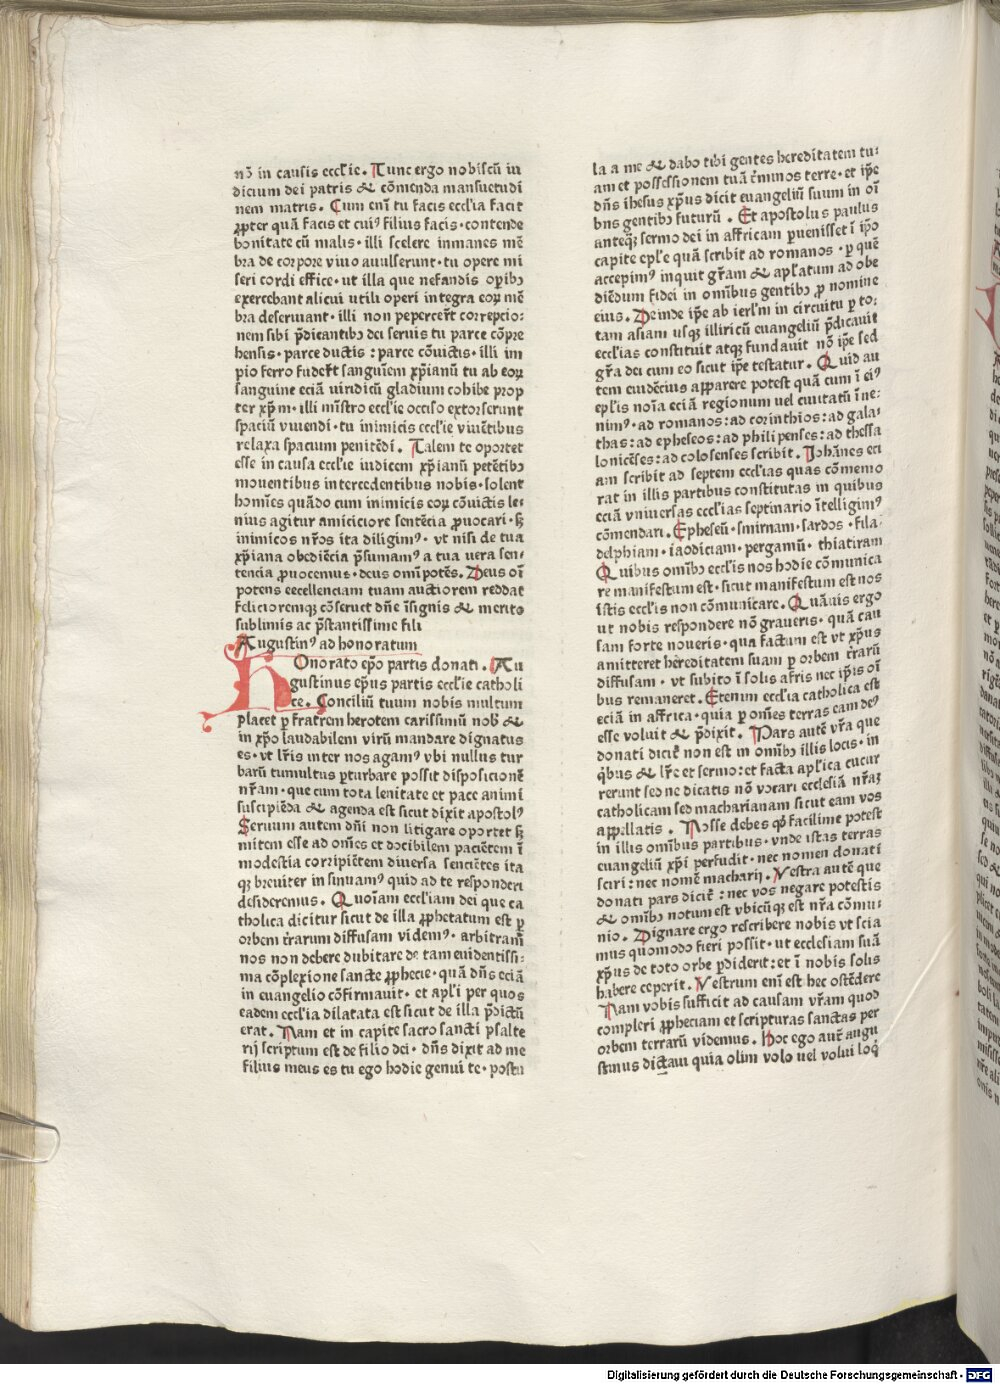 nō in causis eccl'ie. Tunc ergo nobiscū iu
dicium dei patris & cōmenda mansuetudi
nem matris. Cum enī tu facis eccl̄ia facit
ꝓpter quā facis et cui⁹ filius facis · contende
bonitate cū malis · illi scelere inmanes mē
bra de corpore viuo auulserunt · tu opere mi
seri cordi effice · ut illa que nefandis oꝑibꝫ
exercebant alicui utili operi integra eoꝝ mē
bra deseruiant · illi non pepercer̄t correpcio⸗
nem sibi p̄dicantibꝫ dei seruis tu parce cōpre
hensis · parce ductis : parce cōuictis · illi im
pio ferro fuder̄t sanguīem xp̄ianū tu ab eoꝝ
sanguine eciā viridicū gladium cohibe prop
ter xp̄m · illi mīstro eccl̄ie occiso extorserunt
spaciū viuendi · tu inimicis eccl̄ie viuētibus
relaxa spacium penitēdi. Talem te oportet
esse in causa eccl̄ie iudicem xp̄ianū petētibꝫ
mouentibus intercedentibus nobis · solent
homīes quādo cum inimicis eoꝝ cōuictis le⸗
nius agitur amiciciore sentēcia ꝓuocari · sꝫ
inimicos nr̄os ita diligim⁹ · vt nisi de tua
xp̄iana obediēcia p̄sumam⁹ a tua vera sen⸗
tencia ꝓuocemus · deus omīpotēs. Deus oī
potens excellenciam tuam auctiorem reddat
felicioremqꝫ cōseruet dn̄e īsignis & merito
sublimis ac p̄stantissime fili
Augustin⁹ ad honoratum
HOnorato ep̄o partis donati. Au
gustinus ep̄us partis eccl̄ie catholi
ce. Conciliū tuum nobis multum
placet ꝑ fratrem herotem carissimū nob̄ &
in xp̄o laudabilem virū mandare dignatus
es · vt lr̄is inter nos agam⁹ vbi nullus tur
barū tumultus ꝑturbare possit disposicionē
nr̄am · que cum tota lenitate et pace animi
suscipiēda & agenda est sicut dixit apostol⁹
Seruum autem dn̄i non litigare oportet sꝫ
mitem esse ad om̄es et docibilem paciētem ī
modestia corripiētem diuersa senciētes ita
qꝫ breuiter insinuam⁹ quid ad te responderi
desideremus. Quoīam eccl̄iam dei que ca
tholica dicitur sicut de illa ꝓphetatum est ꝑ
orbem tr̄rarum diffusam videm⁹ · arbitram̄
nos non debere dubitare de tam euidentissi⸗
ma cōplexione sancte ꝓphecie · quā dn̄s eciā
in euangelio cōfirmauit · et apl̄i per quos
eadem eccl̄ia dilatata est sicut de illa p̄dictū
erat. Nam et in capite sacro sancti psalte
rij scriptum est de filio dei · dn̄s dixit ad me
filius meus es tu ego hodie genui te · postu
la a me & dabo tibi gentes hereditatem tu⸗
am et possessionem tuā t̄minos terre · et ip̄e
dn̄s ihesus xp̄us dicit euangeliū suum in oī
bus gentibꝫ futurū. Et apostolus paulus
anteqꝫ sermo dei in affricam ꝑuenisset ī ip̄o
capite ep̄le quā scribit ad romanos · ꝑ quē
accepim⁹ inquit gr̄am & apl̄atum ad obe
diēdum fidei in omībus gentibꝫ ꝓ nomine
eius. Deinde ip̄e ab ierl̄m in circuitu ꝑ to⸗
tam asiam usqꝫ illiricū euangeliū p̄dicauit
eccl̄ias constituit atqꝫ fundauit nō ip̄e sed
gr̄a dei cum eo sicut ip̄e testatur. Quid au
tem euidēcius apparere potest quā cum ī ei⁹
ep̄lis noīa eciā regionum uel ciuitatū īue⸗
nim⁹ · ad romanos : ad corinthios : ad gala⸗
thas : ad epheseos : ad philipenses : ad thessa
lonicēses : ad colosenses scribit. Johānes eci
am scribit ad septem eccl̄ias quas cōmemo
rat in illis partibus constitutas in quibus
eciā vniuersas eccl̄ias septinario ītelligim⁹
cōmendari. Epheseū · smirnam · sardos · fila⸗
delphiam · iaodiciam · pergamū · thiatiram
Quibus omībꝫ eccl̄is nos hodie cōmunica
re manifestum est · sicut manifestum est nos
istis eccl̄is non cōmunicare. Quāuis ergo
ut nobis respondere nō graueris · quā cau
sam forte noueris · qua factum est vt xp̄us
amitteret hereditatem suam ꝑ orbem tr̄rarū
diffusam · vt subito ī solis afris nec ip̄is oī
bus remaneret. Etenim eccl̄ia catholica est
eciā in affrica · quia ꝑ om̄es terras eam de⁹
esse voluit & p̄dixit. Pars autē vr̄a que
donati dicit̄ non est in omībꝫ illis locis · in
q̇bus & lr̄e et sermo : et facta apl̄ica cucur
rerunt sed ne dicatis nō vocari ecclesiā nr̄aꝫ
catholicam sed macharianam sicut eam vos
appellatis. Nosse debes qđ facilime potest
in illis omībus partibus · vnde istas terras
euangeliū xp̄i perfudit · nec nomen donati
sciri : nec nomē macharij. Vestra autē que
donati pars dicit̄ : nec vos negare potestis
& omībꝫ notum est vbicūqꝫ est nr̄a cōmu⸗
nio. Dignare ergo rescribere nobis vt scia
mus quomodo fieri possit · ut ecclesiam suā
xp̄us de toto orbe ꝑdiderit : et ī nobis solis
habere ceperit. Vestrum enī est hec ostēdere
Nam vobis sufficit ad causam vr̄am quod
compleri ꝓpheciam et scripturas sanctas per
orbem terrarū videmus. Hoc ego aut̄ augu
stinus dictaui quia olim volo uel volui loqͥ
Digitalisierung gefördert durch die Deutsche Forschungsgemeinschaft - DFG